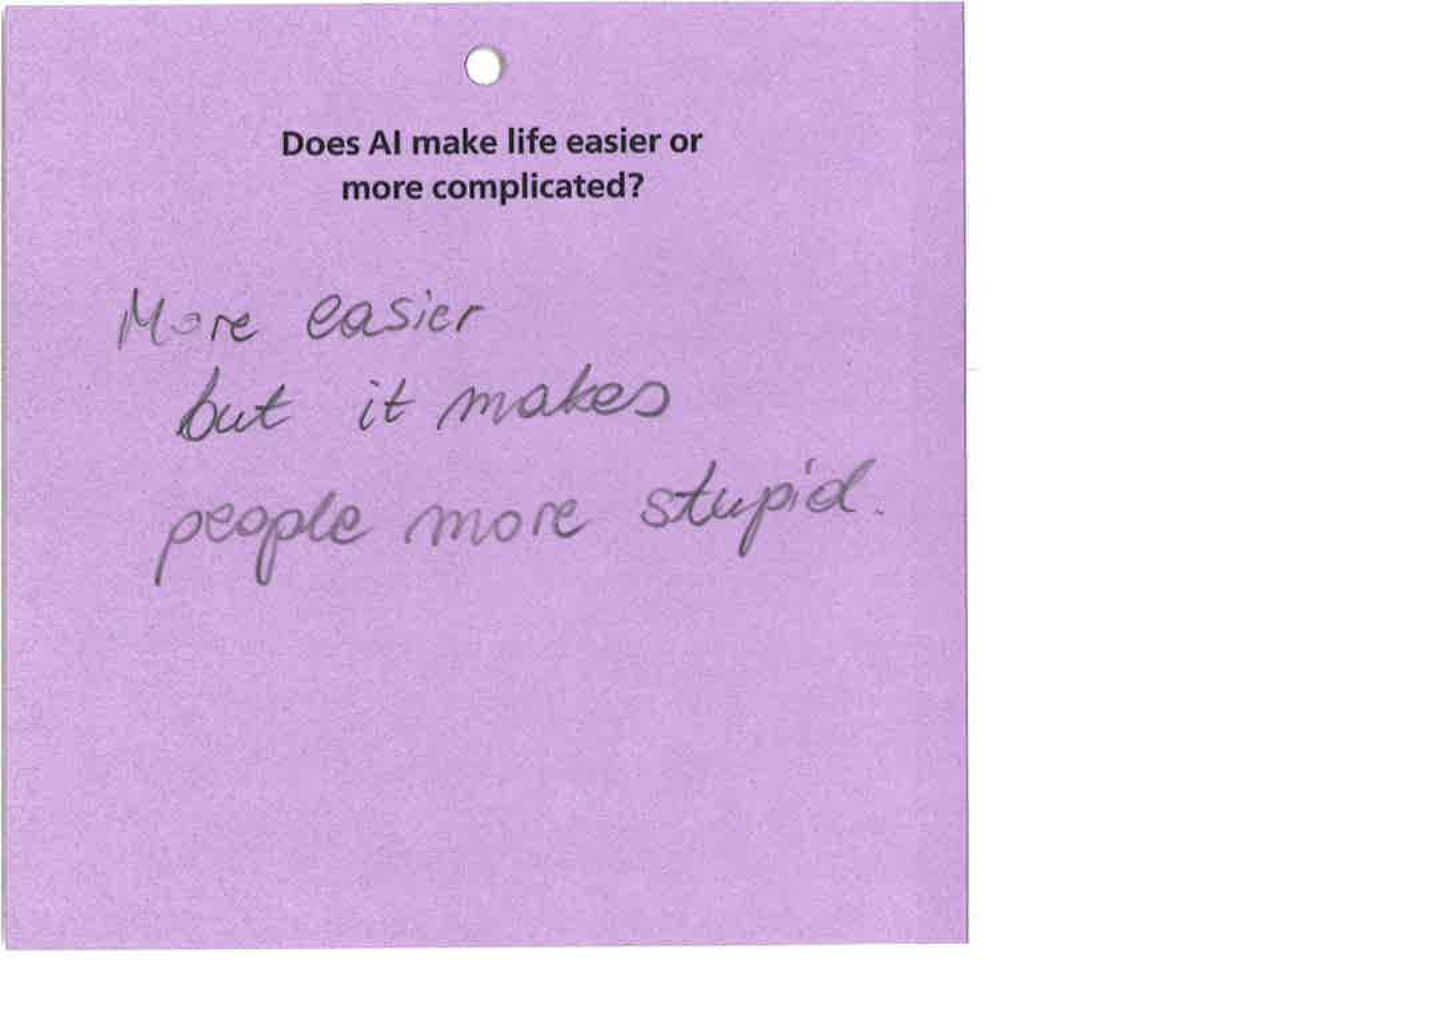 Does AI make life easier or
more complicated?
More easier
but it makes
people more stupid.